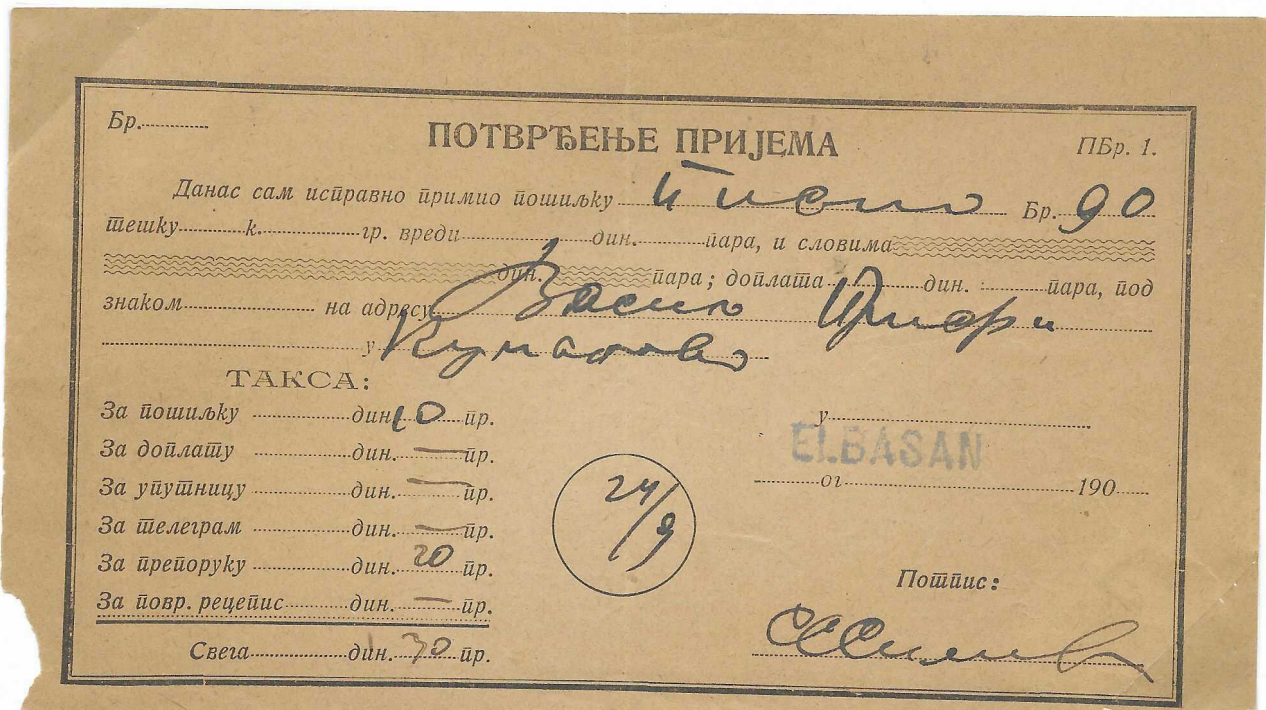 Бр.
ПОТВРЂЕЊЕ ПРИЈЕМА
ПБр. 1.
Данас сам исправно примио пошиљку писмо Бр. 90
тешку к. гр. вреди дин. пара, и словима
дин. пара; доплата дин. пара, под
знаком на адресу Васил
у Куманово
ТАКСА:
За пошиљку дин. 10 пр.
За доплату дин. — пр.
За упутницу дин. — пр.
За телеграм дин. — пр.
За препоруку дин. 20 пр.
За повр. рецепис дин. — пр.
Свега дин. 30 пр.
24/9
у
ELBASAN
ог 190
Потпис: